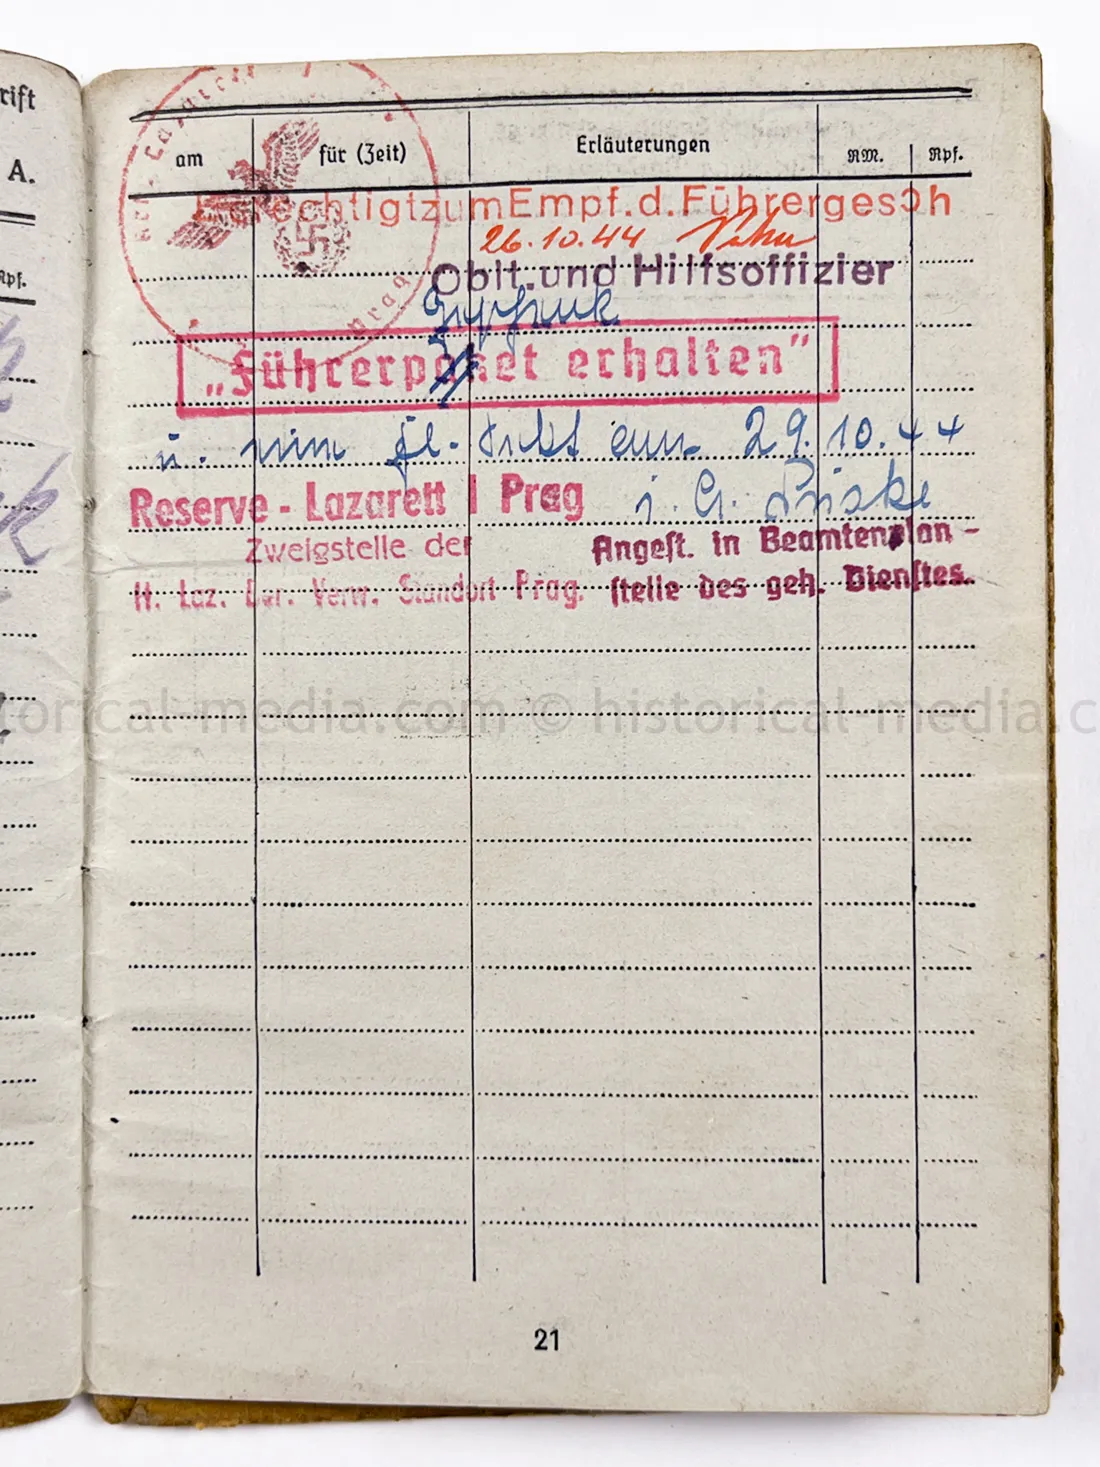 rift
A.
Rpf.
am für (Zeit) Erläuterungen RM. Rpf.
Res.-Lazarett I Prag
BerechtigtzumEmpf.d.Führergesch
26.10.44
Oblt.und Hilfsoffizier
„Führerpaket erhalten"
u. am 29.10.44
Reserve-Lazarett I Prag i.A.
Zweigstelle der Angest. in Beamtenplan-
H. Laz. Verw. Standort Prag. stelle des geh. Dienstes.
historical-media.com © historical-media.c
21